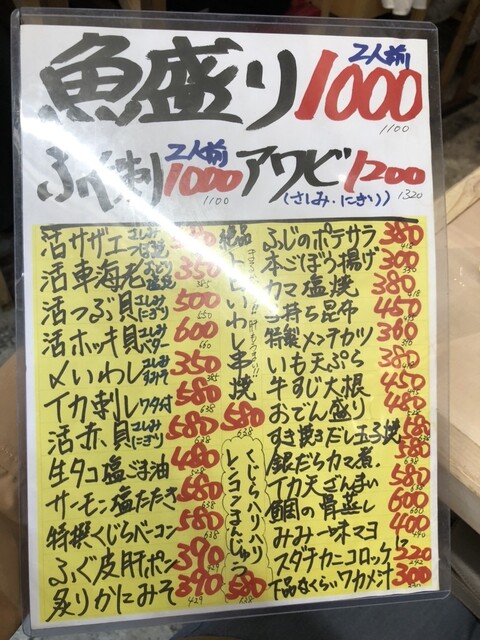 魚盛り 2人前 1000
1100
ふぐ刺 2人前 1000
1100
アワビ 1200
(さしみ・にぎり) 1320
活サザエ
活車海老 350
385
活つぶ貝 さしみ にぎり 500
550
活ホッキ貝 さしみ バター 600
660
〆いわし さしみ 350
385
イカ刺し ワタ付 580
638
活赤貝 さしみ にぎり 580
638
生タコ塩ごま油 480
528
サーモン塩たたき 580
638
特撰くじらベーコン 580
638
ふぐ皮肝ポン 390
429
炙りかにみそ 390
429
絶品
いわし串焼 580
638
くじらハリハリ
レンコンまんじゅう 580
638
ふじのポテサラ 380
418
本ごぼう揚げ 300
330
カマ塩焼 380
418
子持ち昆布 450
特製メンチカツ 360
いも天ぷら 380
418
牛すじ大根 450
おでん盛り 480
528
すき焼きだし玉子焼 580
銀だらカマ煮 580
イカ天ざんまい 580
鯛の骨蒸し 600
660
みみ一味マヨ 400
440
スダチカニコロッケ 220
242
下品なくらいワカメ汁 300